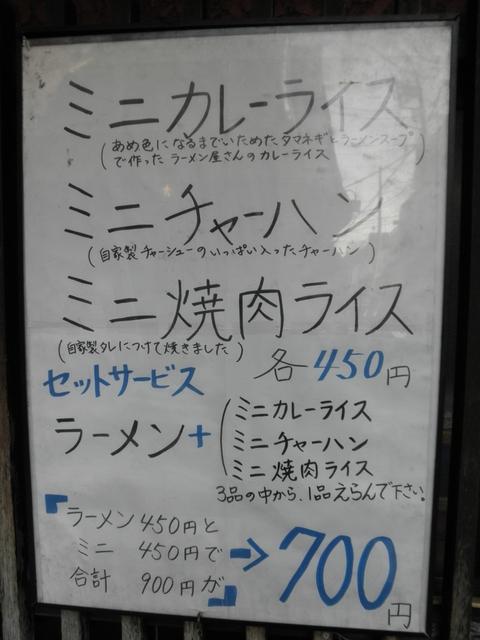 ミニカレーライス
(あめ色になるまでいためたタマネギとラーメンスープ
で作ったラーメン屋さんのカレーライス)
ミニチャーハン
(自家製チャーシューのいっぱい入ったチャーハン)
ミニ焼肉ライス
(自家製タレにつけて焼きました)
各450円
セットサービス
ラーメン+(ミニカレーライス
ミニチャーハン
ミニ焼肉ライス
3品の中から、1品えらんで下さい。
『ラーメン450円と
ミニ 450円で
合計 900円が』
→700円